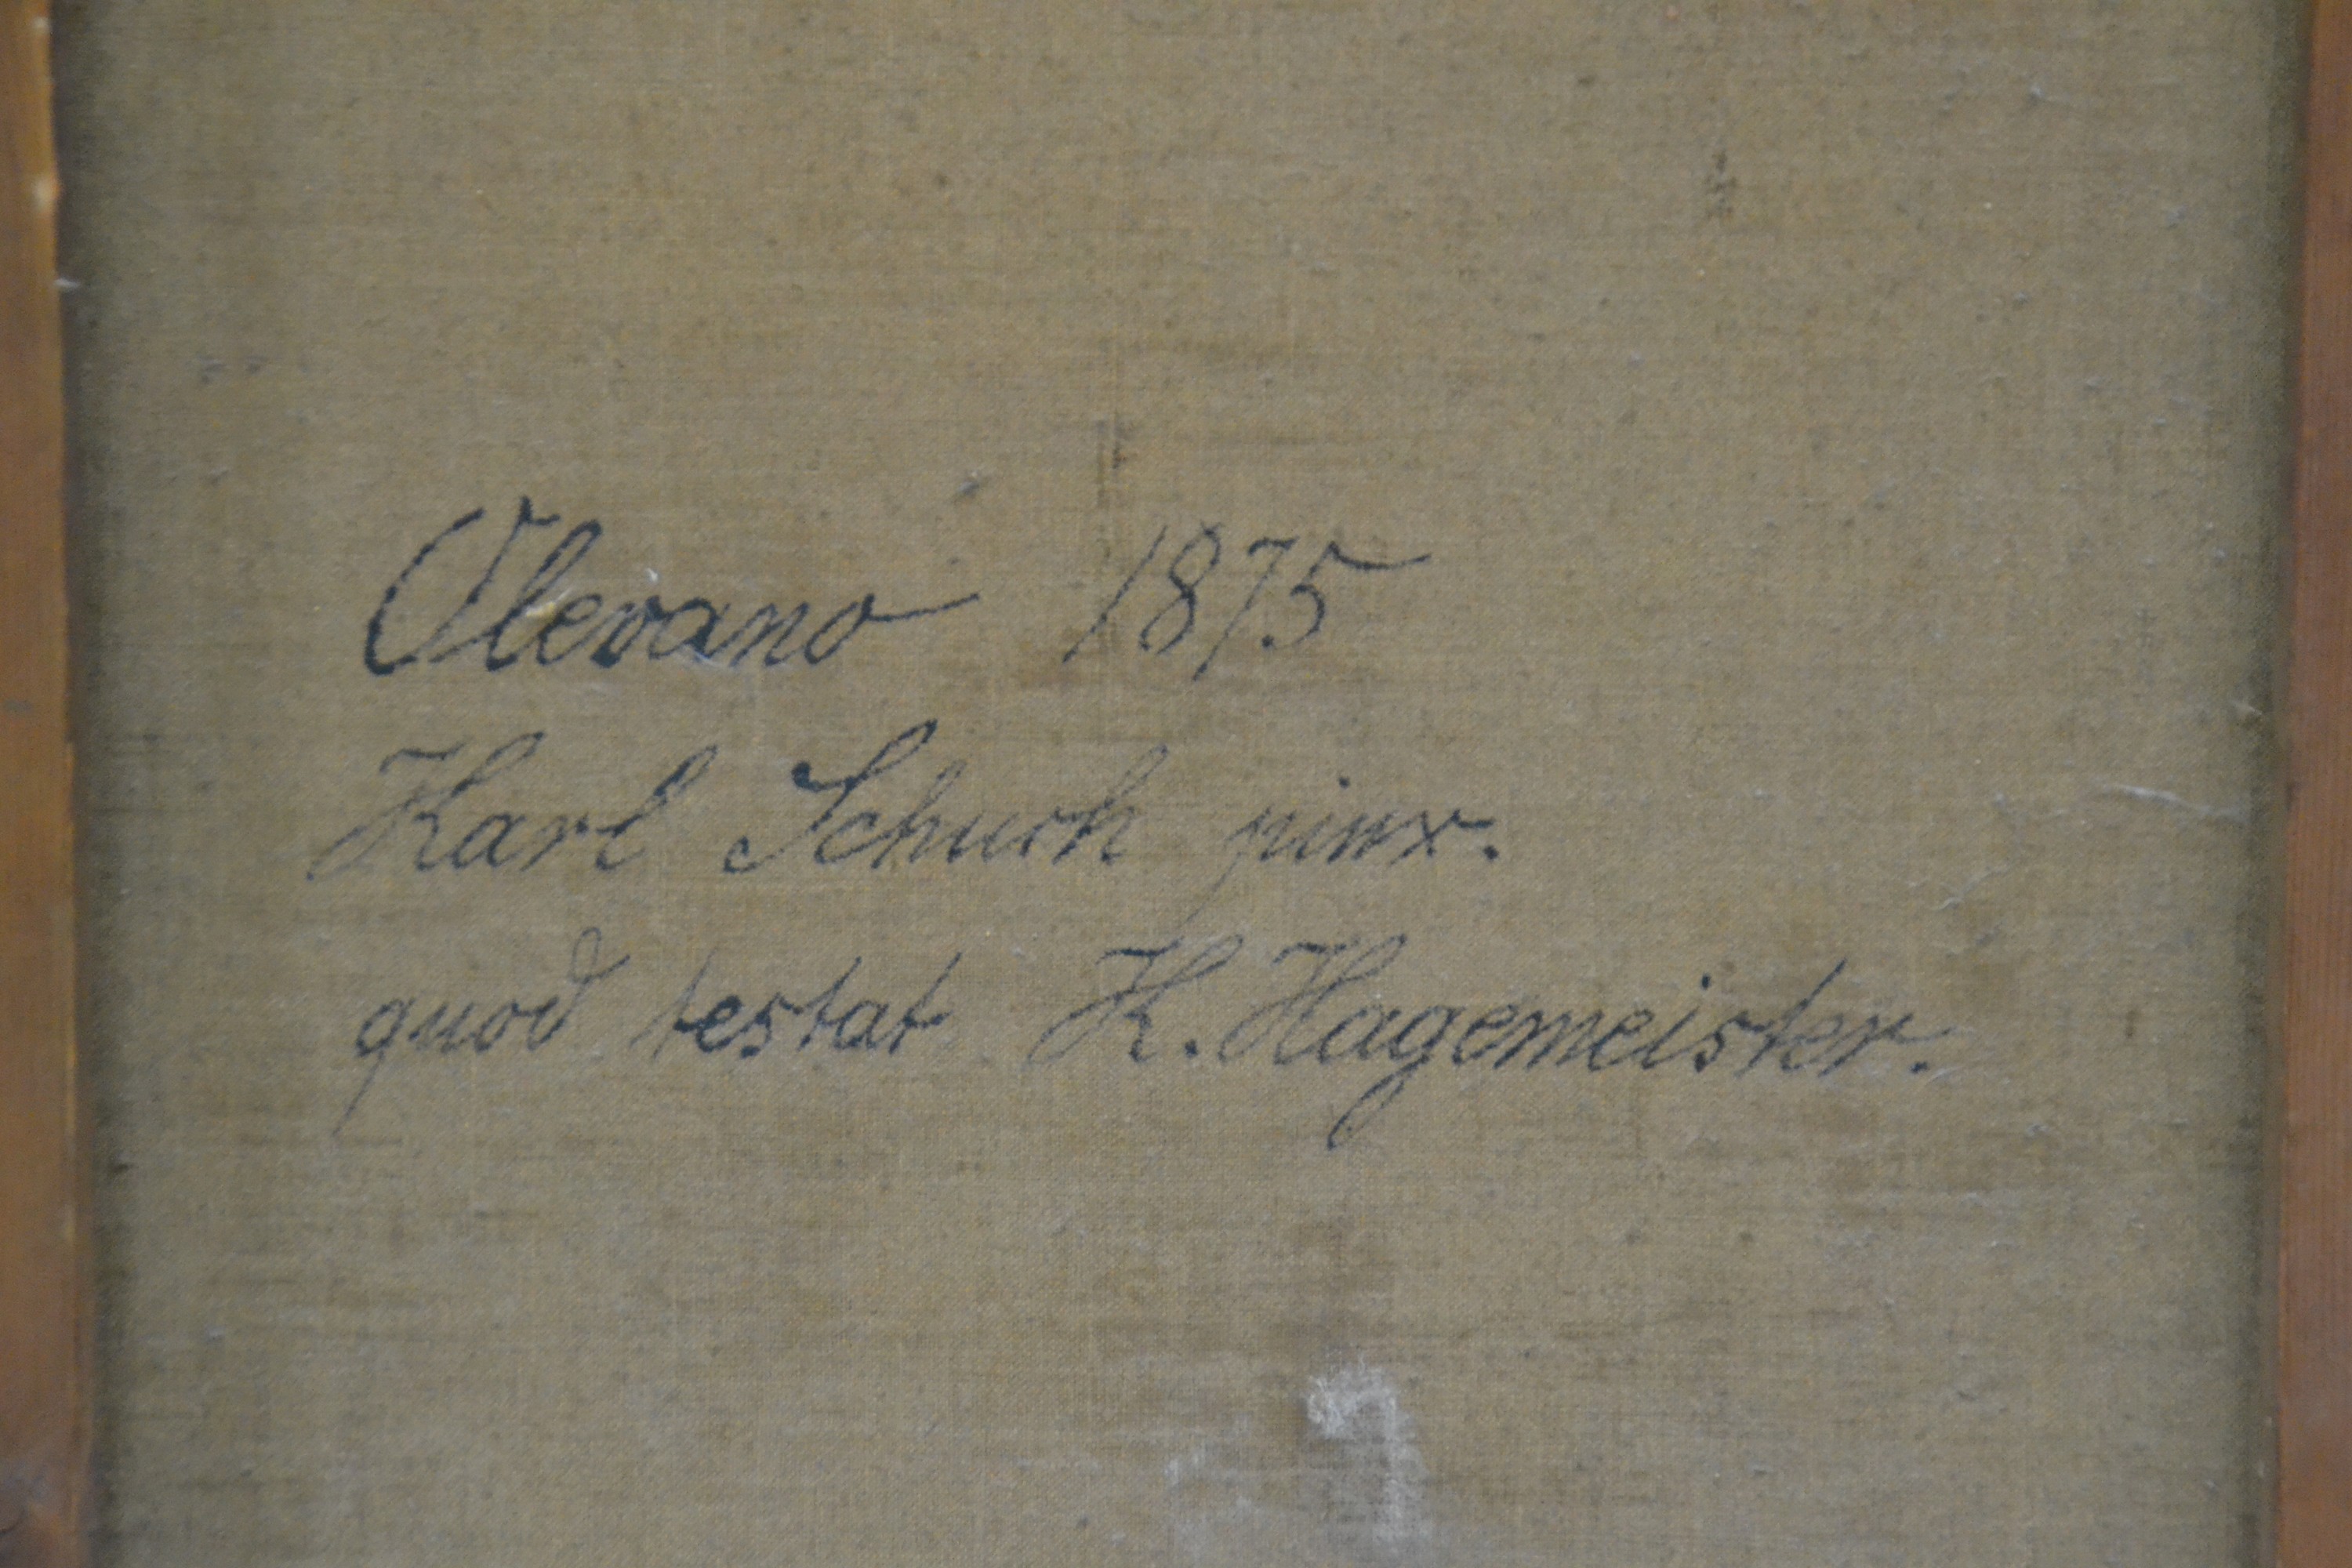 Olevano 1875
Karl Schuch pinx.
quod testat K. Hagemeister.